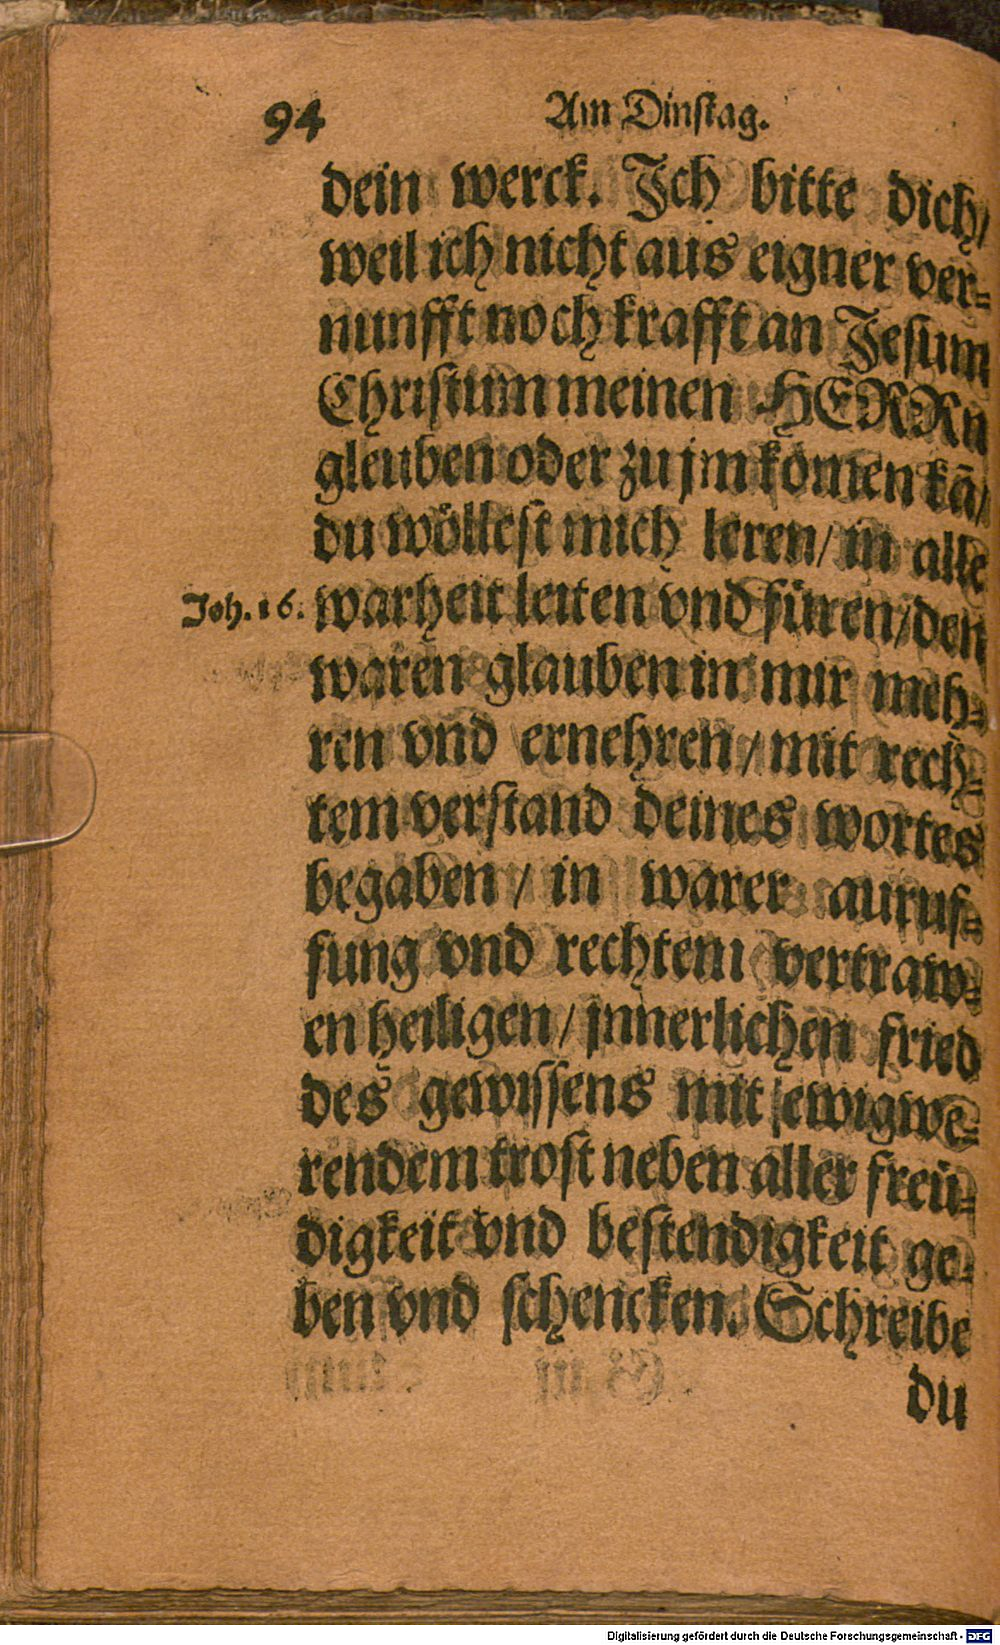 94
Am Dinſtag.
dein werck. Ich bitte dich/
weil ich nicht aus eigner ver-
nunfft noch krafft an Jeſum
Chriſtum meinen HERRn
gleuben oder zu jm komen kā/
du wölleſt mich leren/ in alle
Joh. 16. warheit leiten vnd füren/ den
waren glauben in mir meh-
ren vnd ernehren/ mit rech-
tem verſtand deines wortes
begaben/ in warer anruf-
fung vnd rechtem vertraw-
en heiligen/ jnnerlichen fried
des gewiſſens mit ewigwe-
rendem troſt neben aller freü-
digkeit vnd beſtendigkeit ge-
ben vnd ſchencken. Schreibe
du
Digitalisierung gefördert durch die Deutsche Forschungsgemeinschaft - DFG